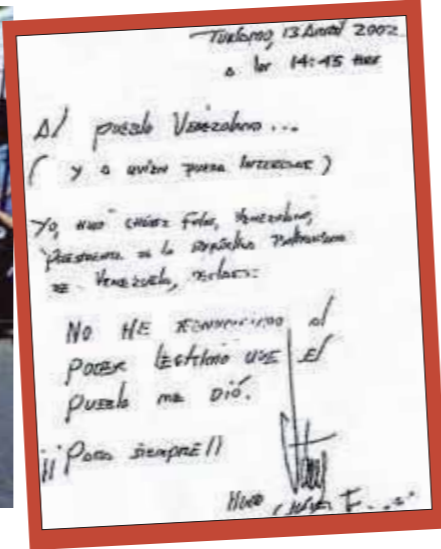 Turiamo, 13 Abril 2002
a las 14:45 hrs
Al pueblo Venezolano...
(y a quien pueda interesar)
Yo, Hugo Chávez Frías, Venezolano,
Presidente de la República Bolivariana
de Venezuela, declaro:
No HE RENUNCIADO al
PODER LEGÍTIMO QUE El
PUEBLO me DIÓ.
¡¡Para SIEMPRE!!
Hugo Chávez F...